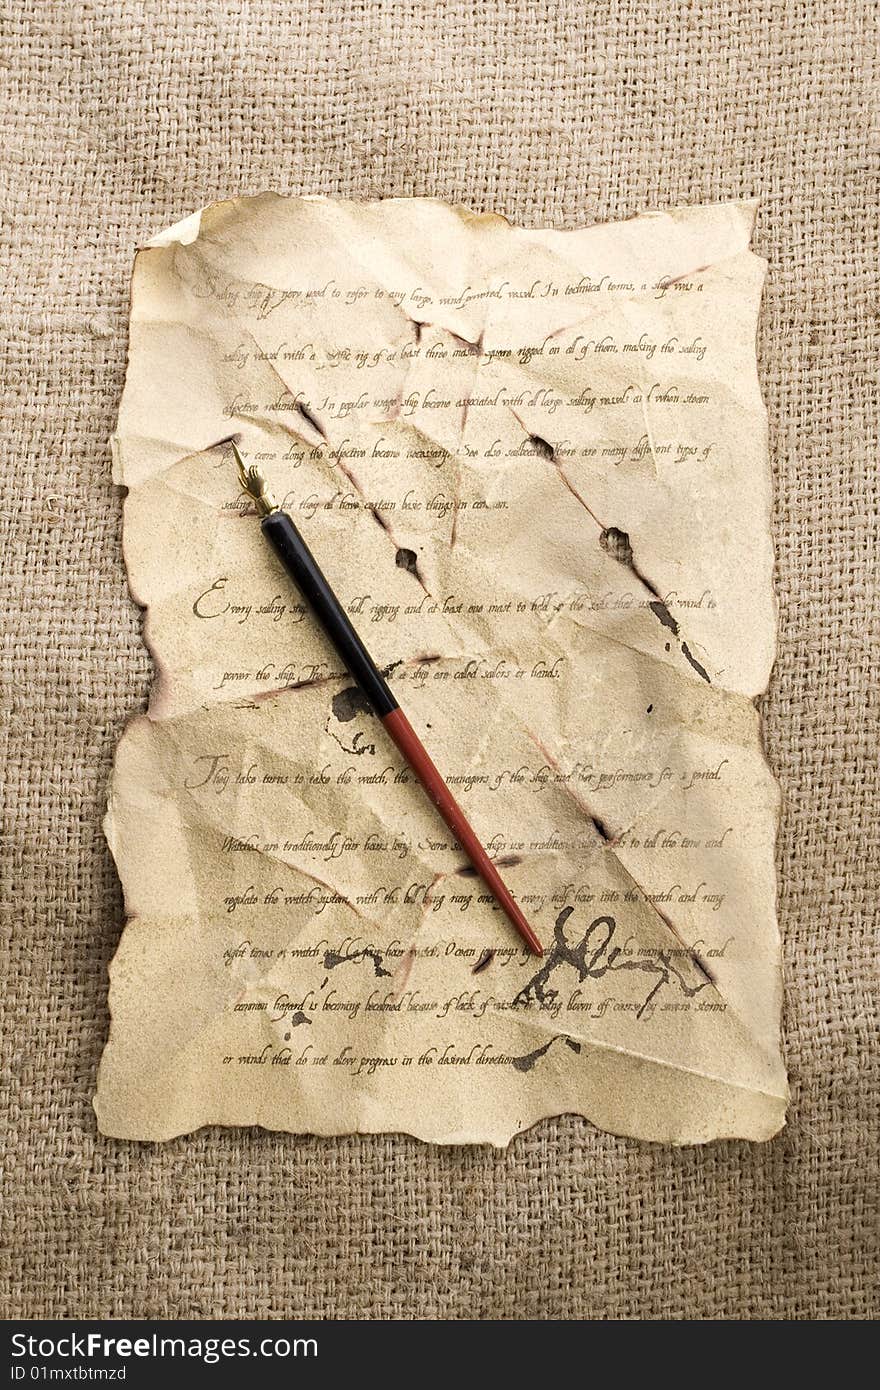 Sailing ship is now used to refer to any large, wind powered, vessel. In technical terms, a ship was a
sailing vessel with a specific rig of at least three masts, square rigged on all of them, making the sailing
adjective redundant. In popular usage ship became associated with all large sailing vessels and when steam
power came along the adjective became necessary. See also sailboat. There are many different types of
sailing but they all have certain basic things in common.
Every sailing ship hull, rigging and at least one mast to hold up the sails that use the wind to
power the ship. The a ship are called sailors or hands.
They take turns to take the watch, the managers of the ship and her performance for a period.
Watches are traditionally four hours long. Some ships use traditional to tell the time and
regulate the watch system, with the bell being rung once for every half hour into the watch and rung
eight times watch end (a four-hour watch). Ocean journeys by take many months, and
common hazard is becoming becalmed because of lack of wind, or being blown off course by severe storms
or winds that do not allow progress in the desired direction.
StockFreeImages.com
ID 01mxtbtmzd